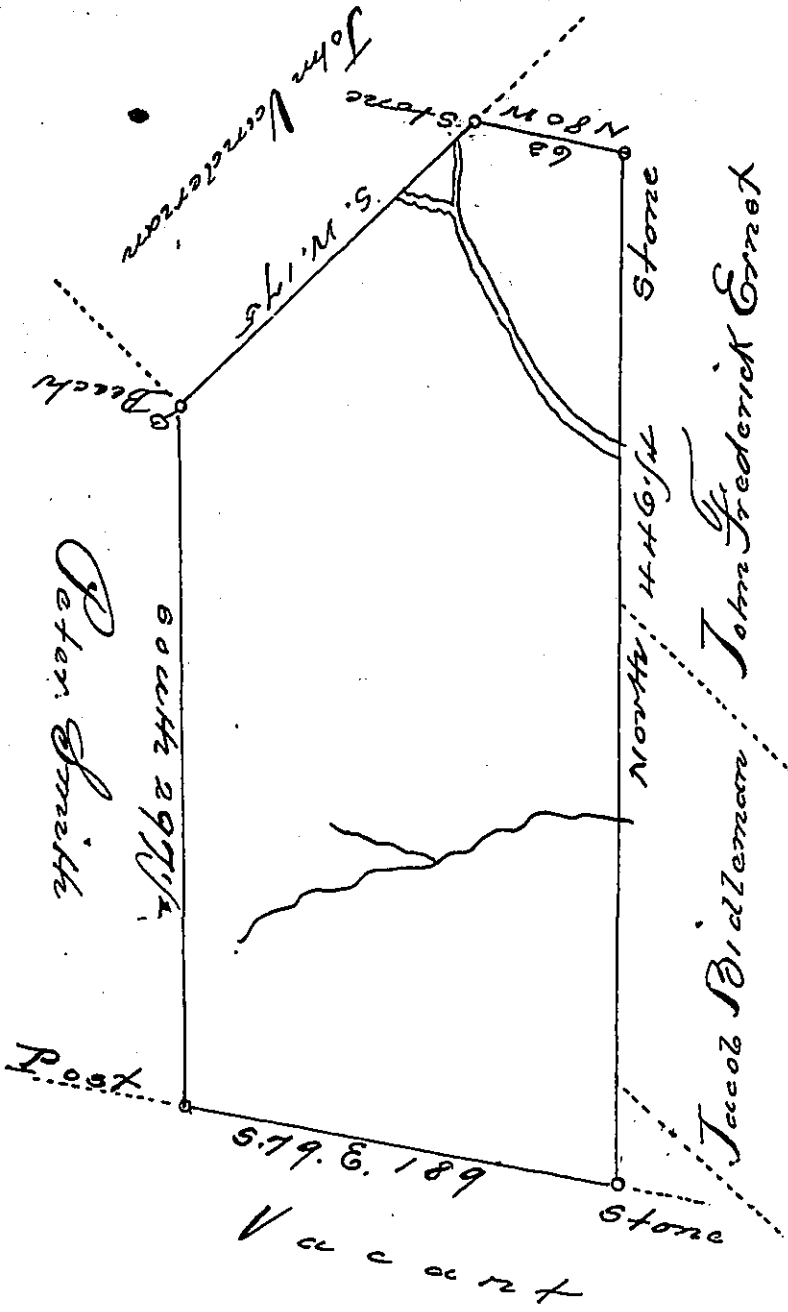 John Vanderian
Stone
N 80 W
63
Stone
S. W. 175
Beach
John Frederick Ernst
North 446 1/4
Jacob Bidleman
South 297 1/2
Peter Smith
Post
S. 79. E. 189
Stone
Vacant